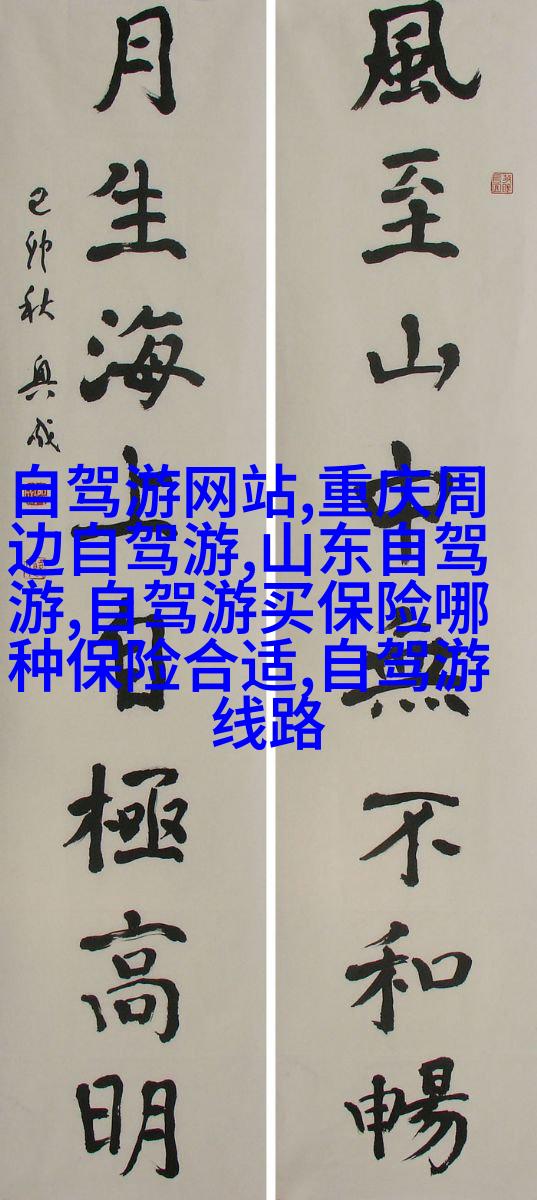 風至山中無不和暢
月生海上自極高明
己卯秋
自驾游网站,重庆周
边自驾游,山东自驾
游,自驾游买保险哪
种保险合适,自驾游
线路